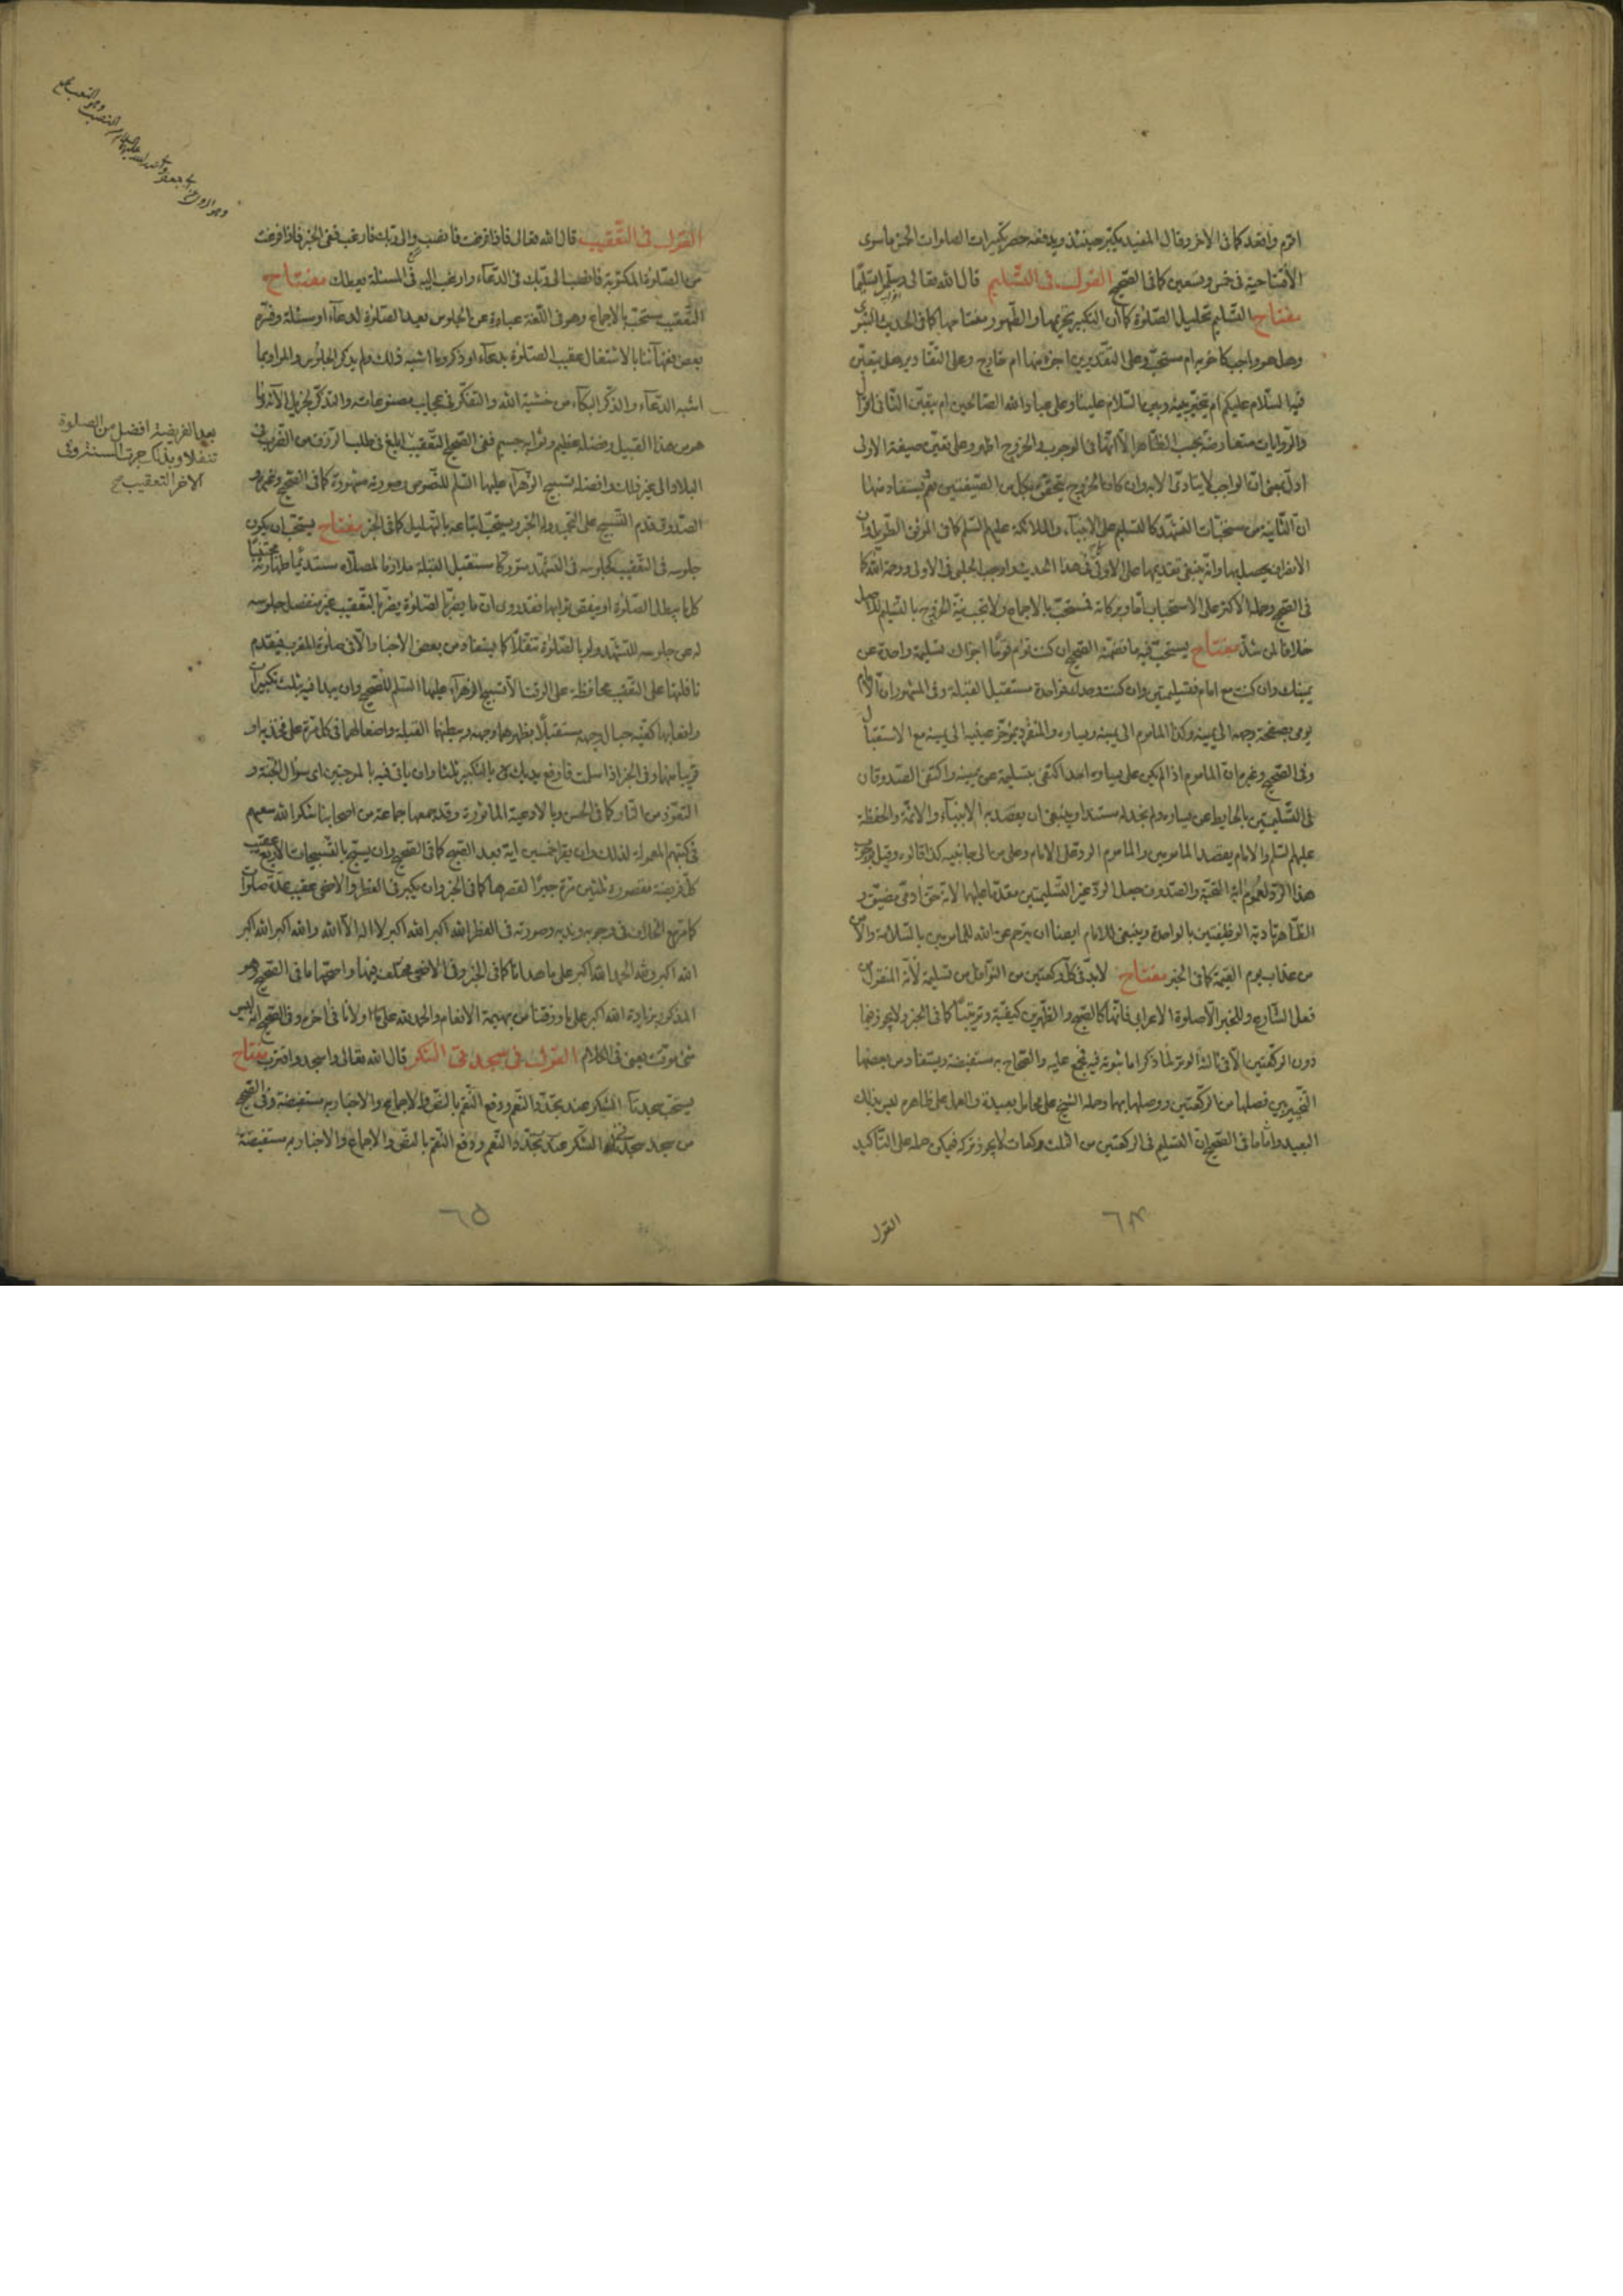 اقوم واقعد كما في الاخر وقال المفيد يكبر حينئذ ويدفعه حصر تكبيرات الصلوات الخمس ما سوى
الافتتاحية في خمس وتسعين كما في الصحيح القول في التسليم قال الله تعالى وسلموا تسليما
مفتاح التسليم تحليل الصلوة كما ان التكبير تحريمها والطهور مفتاحها كما في الحديث النبوي
وهل هو واجب كما خرير ام مستحب وعلى التقديرين جزء منها ام خارج وعلى التقادير هل يتعين
فيه السلام عليكم ام تخير بينه وبين السلام علينا وعلى عباد الله الصالحين ام يتعين الثاني اقوال
والروايات متعارضة بحسب الظاهر الا انها في الوجوب والخروج اظهر وعلى تعين صيغة الاولى
ادل بمعنى ان الواجب لا يتادى الا به وان كان الخروج يتحقق بكل من الصيغتين نعم يستفاد منها
ان الثانية من مستحبات التشهد كالتسليم على الانبياء والملائكة عليهم السلم كما في الموثق الطويل وان
الانصراف يحصل بها وانه ينبغي تقديمها على الاولى في هذا الحديث واوجب الحلبي في الاولى ورحمة الله كما
في الصحيح وحمله الاكثر على الاستحباب اما وبركاته فمستحب بالاجماع ولا تجب نية الخروج بالتسليم للاصل
خلافا لمن شذ مفتاح يستحب فيه ما تضمنه الصحيح ان كنت تؤم قوما اجزاك تسليمة واحدة عن
يمينك وان كنت مع امام فتسليمتين وان كنت وحدك فواحدة مستقبل القبلة وفي المشهور ان الامام
يومي بصفحة وجهه الى يمينه وكذا الماموم الى يمينه ويساره والمنفرد بمؤخر عينيه الى يمينه مع الاستقبال
وفي الصحيح وغيره ان الماموم اذا لم يكن على يساره احد اكتفى بتسليمة عن يمينه واكتفى الصدوقان
في التسليمتين بالحايط عن يساره ولم نجد له مستندا وينبغي ان يقصد به الانبياء والائمة والحفظة
عليهم السلم والامام يقصد المامومين والماموم الرد على الامام وعلى من الى جانبيه كذا قالوه وقيل بوجوب
هذا الرد لعموم اية التحية والصدوق جعل الرد غير التسليمتين مقدما عليهما لانه حق ادمي مضيق و
الظاهر تادية الوظيفتين بالواحدة وينبغي للامام ايضا ان يترجم عن الله للمامومين بالسلامة والامن
من عذاب يوم القيمة كما في الخبر مفتاح لابد في كل ركعتين من النوافل من تسليمة لانه المنقول من
فعل الشارع وللخبر الا صلوة الاعرابي فانها كالصبح والظهرين كيفية وترتيبا كما في الخبر ولا يجوز فيها
دون الركعتين الا في ثالثة الوتر لما ذكر اما ثبوته فيه فمجمع عليه والصحاح به مستفيضة ويستفاد من بعضها
التخيير بين فصلها من الركعتين ووصلها بهما وحمله الشيخ على محامل بعيدة والعمل على ظاهره ليس بذلك
البعيد واما ما في الصحيح ان التسليم في الركعتين من الثلث ركعات لا يجوز تركه فيمكن حمله على التاكيد
القول
٦٤
القول في التعقيب قال الله تعالى فاذا فرغت فانصب والى ربك فارغب ففي الخبر فاذا فرغت
من الصلوة المكتوبة فانصب الى ربك في الدعاء وارغب اليه في المسئلة يعطك مفتاح
التعقيب مستحب بالاجماع وهو في اللغة عبارة عن الجلوس بعد الصلوة لدعاء او مسئلة وفسره
بعض فقهائنا بالاشتغال عقيب الصلوة بدعاء او ذكر وما اشبه ذلك ولم يذكر الجلوس والمراد بما
اشبه الدعاء والذكر البكاء من خشية الله والتفكر في عجايب مصنوعاته والتذكر لجزيل الآئه وما
هو من هذا القبيل وفضله عظيم وثوابه جسيم ففي الصحيح التعقيب ابلغ في طلب الرزق من الضرب في
البلاد الى غير ذلك وافضله تسبيح الزهرآء عليها السلم للنصوص وصورته مشهورة كما في الصحيح وغيره و
الصدوق قدم التسبيح على التحميد وله الخبر ويستحب اتباعه بالتهليل كما في الخبر مفتاح يستحب ان يكون
جلوسه في التعقيب كجلوسه في التشهد متوركا مستقبل القبلة ملازما لمصلاه مستديما طهارته مجتنبا
كل ما يبطل الصلوة او ينقص ثوابها فقد روى ان ما يضر بالصلوة يضر بالتعقيب غير منفصل جلوسه
له عن جلوسه للتشهد ولو بالصلوة تنفلا كما يستفاد من بعض الاخبار والا في صلوة المغرب فيقدم
نافلتها على التعقيب محافظة على الوقت الا تسبيح الزهرآء عليها السلم للصحيح وان يبدا فيه بثلث تكبيرات
رافعا بها كفيه حيال وجهه مستقبلا بظهرهما وجهه وببطنهما القبلة واضعا لهما في كل مرة على فخذيه او
قريبا منهما وفي الخبر اذا سلمت فارفع يديك بالتكبير ثلثا وان ياتي فيه بالموجبتين اى سؤال الجنة و
التعوذ من النار كما في الحسن وبالادعية الماثورة وقد جمعها جماعة من اصحابنا شكر الله سعيهم
في كتبهم المعمولة لذلك وان يقرا خمسين اية بعد الصبح كما في الصحيح وان يسبح بالتسبيحات الاربع عقيب
كل فريضة مقصورة ثلثين مرة جبرا لقصرها كما في الخبر وان يكبر في الفطر والاضحى عقيب عدة صلوات
كما مر مع الخلاف في وجوبه وندبه وصورته في الفطر الله اكبر الله اكبر لا اله الا الله والله اكبر الله اكبر
الله اكبر ولله الحمد الله اكبر على ما هدانا كما في الخبر وفي الاضحى مختلف فيها واصحها ما في الصحيح وهو
المذكور بزيادة الله اكبر على ما رزقنا من بهيمة الانعام والحمد لله على ما اولانا في اخره وفي الصحيح انه ليس
شى موقت يعني في الكلام القول في سجدتي الشكر قال الله تعالى واسجد واقترب مفتاح
يستحب سجدتا الشكر عند تجدد النعم ودفع النقم بالنص والاجماع والاخبار به مستفيضة وفي الصحيح
من سجد سجدة الشكر عند تجدد النعم ودفع النقم بالنص والاجماع والاخبار به مستفيضة
٦٥
بعد الفريضة افضل من الصلوة
تنفلا وبذلك جرت السنة وفي
الاخر التعقيب صح